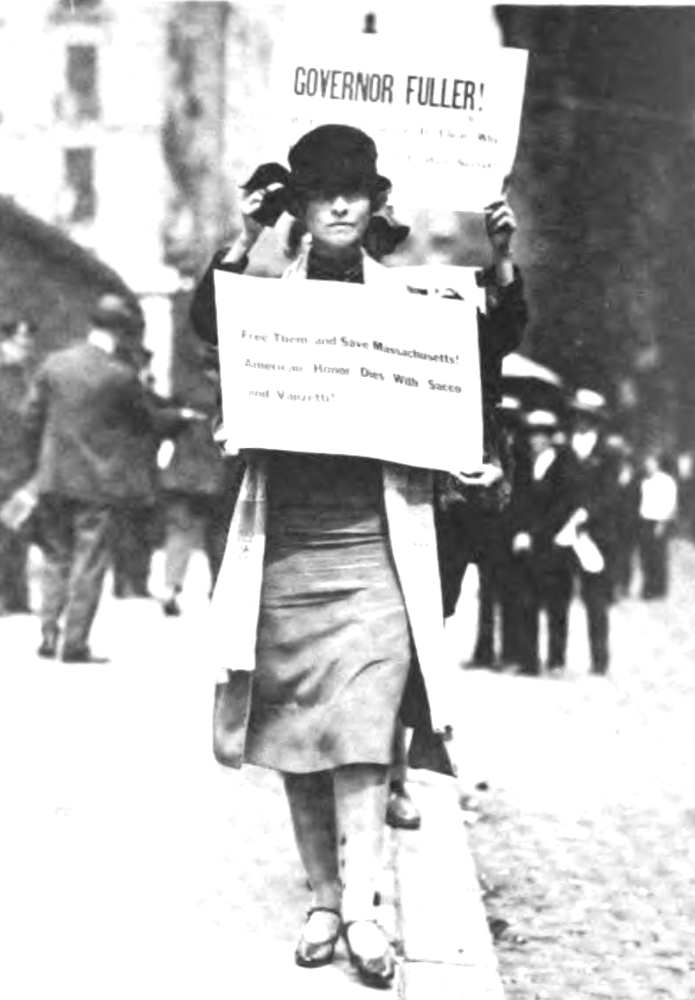 GOVERNOR FULLER!
Why
Free Them and Save Massachusetts!
American Honor Dies With Sacco
and Vanzetti!